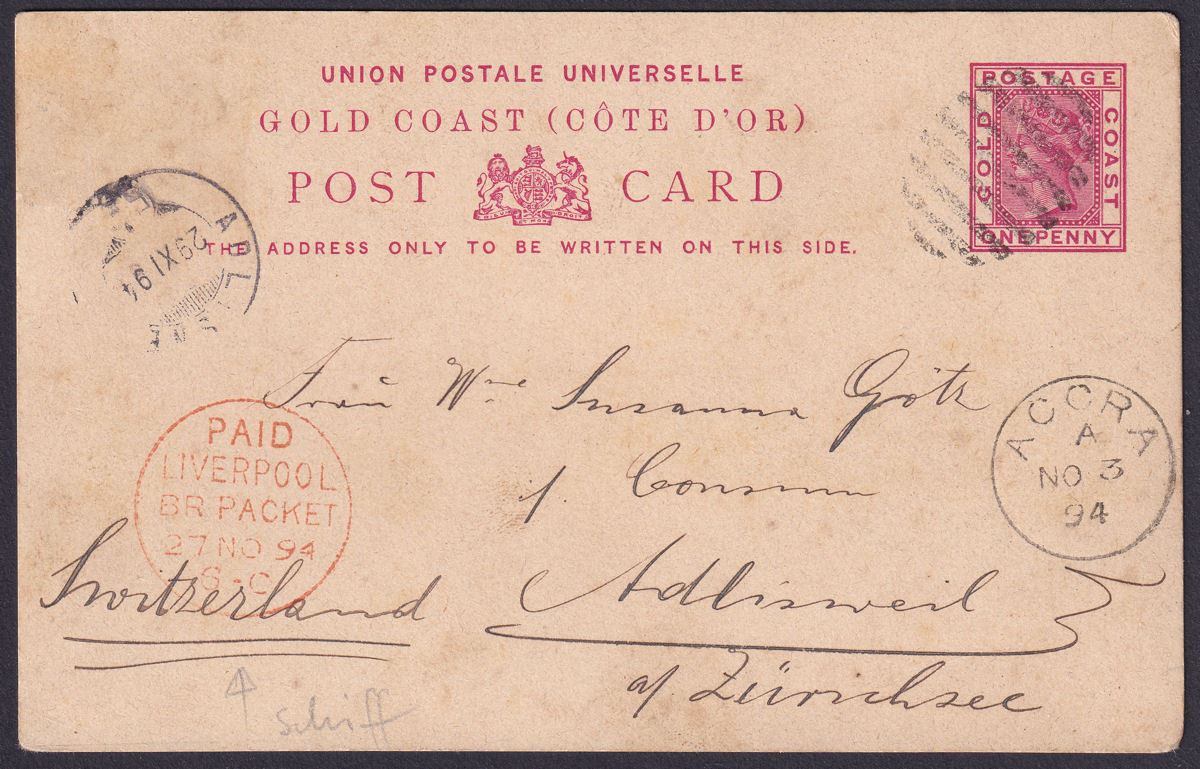 UNION POSTALE UNIVERSELLE
GOLD COAST (CÔTE D'OR)
POST CARD
THE ADDRESS ONLY TO BE WRITTEN ON THIS SIDE.
POSTAGE
GOLD
COAST
ONE PENNY
29 XI 94
Frau Wwe Susanna Götz
Consum
Adlisweil
a/ Zürichsee
Switzerland
PAID
LIVERPOOL
BR PACKET
27 NO 94
ACCRA
A
NO 3
94
Schiff